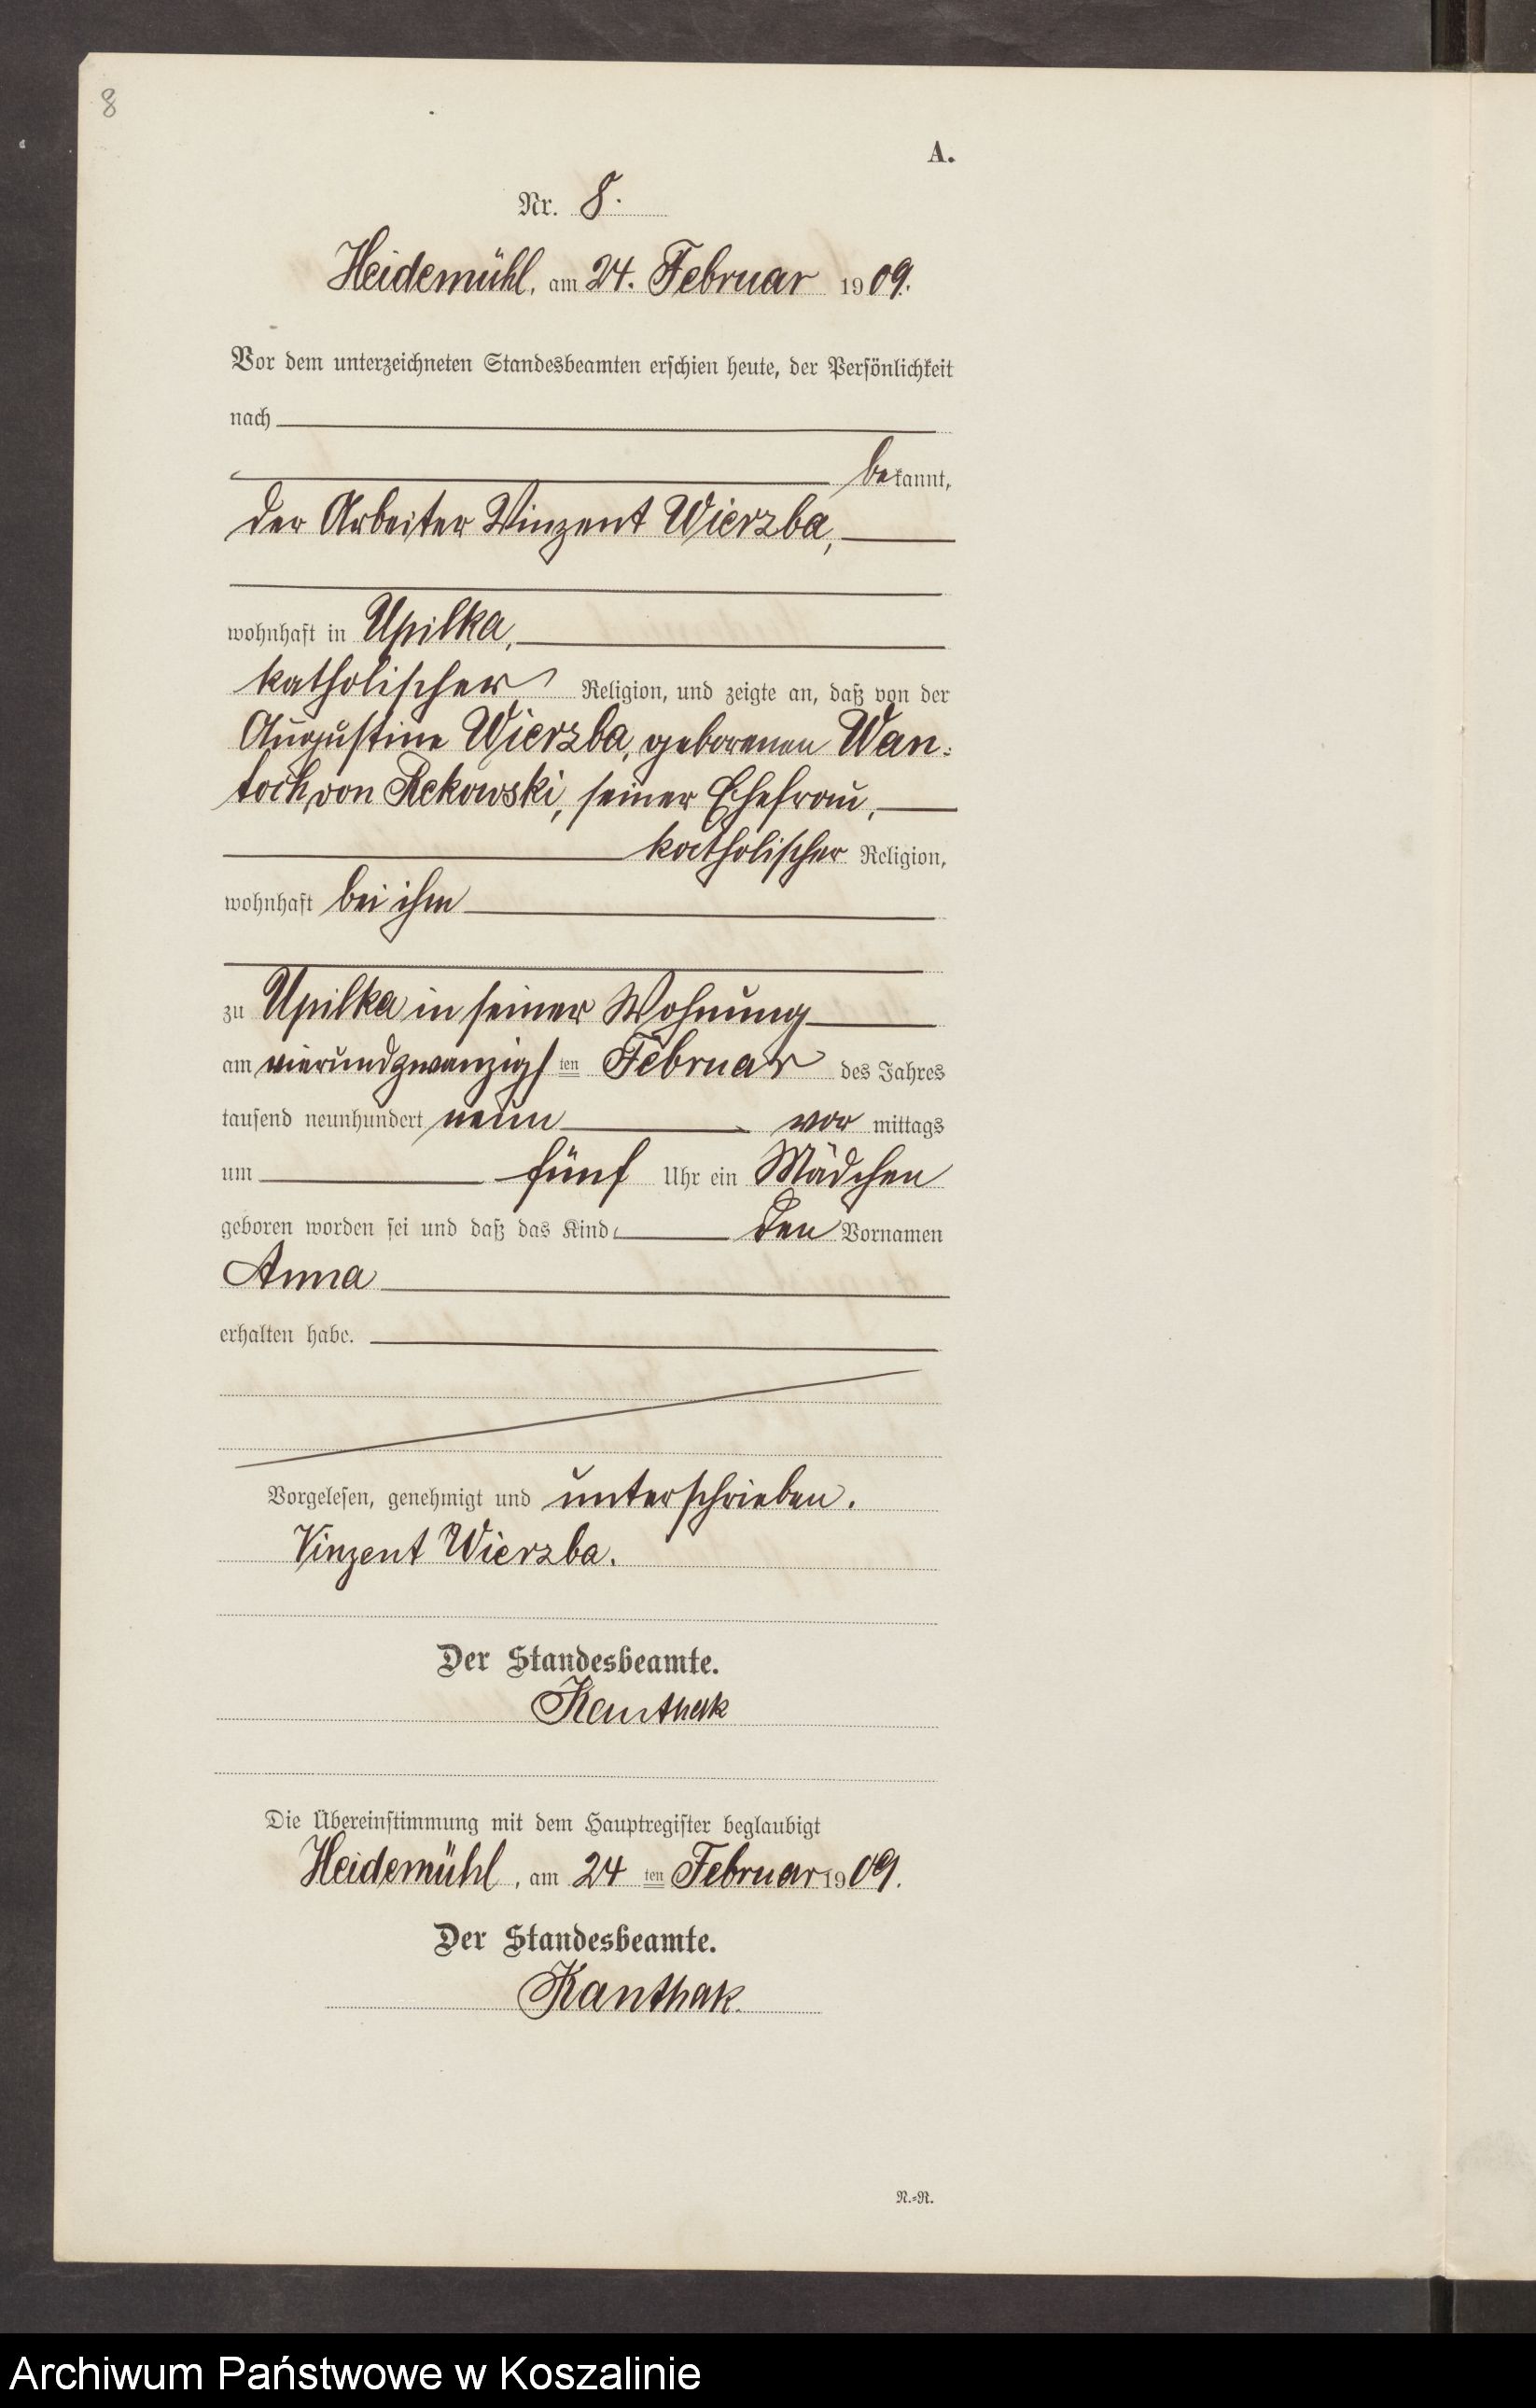 8
A.
Nr. 8.
Heidemühl, am 24. Februar 1909.
Vor dem unterzeichneten Standesbeamten erschien heute, der Persönlichkeit
nach
bekannt,
der Arbeiter Vinzent Wierzba,
wohnhaft in Upilka,
katholischer Religion, und zeigte an, daß von der
Augustine Wierzba, geborenen Wan:
toch von Rekowski, seiner Ehefrau,
katholischer Religion,
wohnhaft bei ihm
zu Upilka in seiner Wohnung
am vierundzwanzigsten Februar des Jahres
tausend neunhundert neun vor mittags
um fünf Uhr ein Mädchen
geboren worden sei und daß das Kind den Vornamen
Anna
erhalten habe.
Vorgelesen, genehmigt und unterschrieben.
Vinzent Wierzba.
Der Standesbeamte.
Kanthak
Die Übereinstimmung mit dem Hauptregister beglaubigt
Heidemühl, am 24ten Februar 1909.
Der Standesbeamte.
Kanthak.
N.=R.
Archiwum Państwowe w Koszalinie